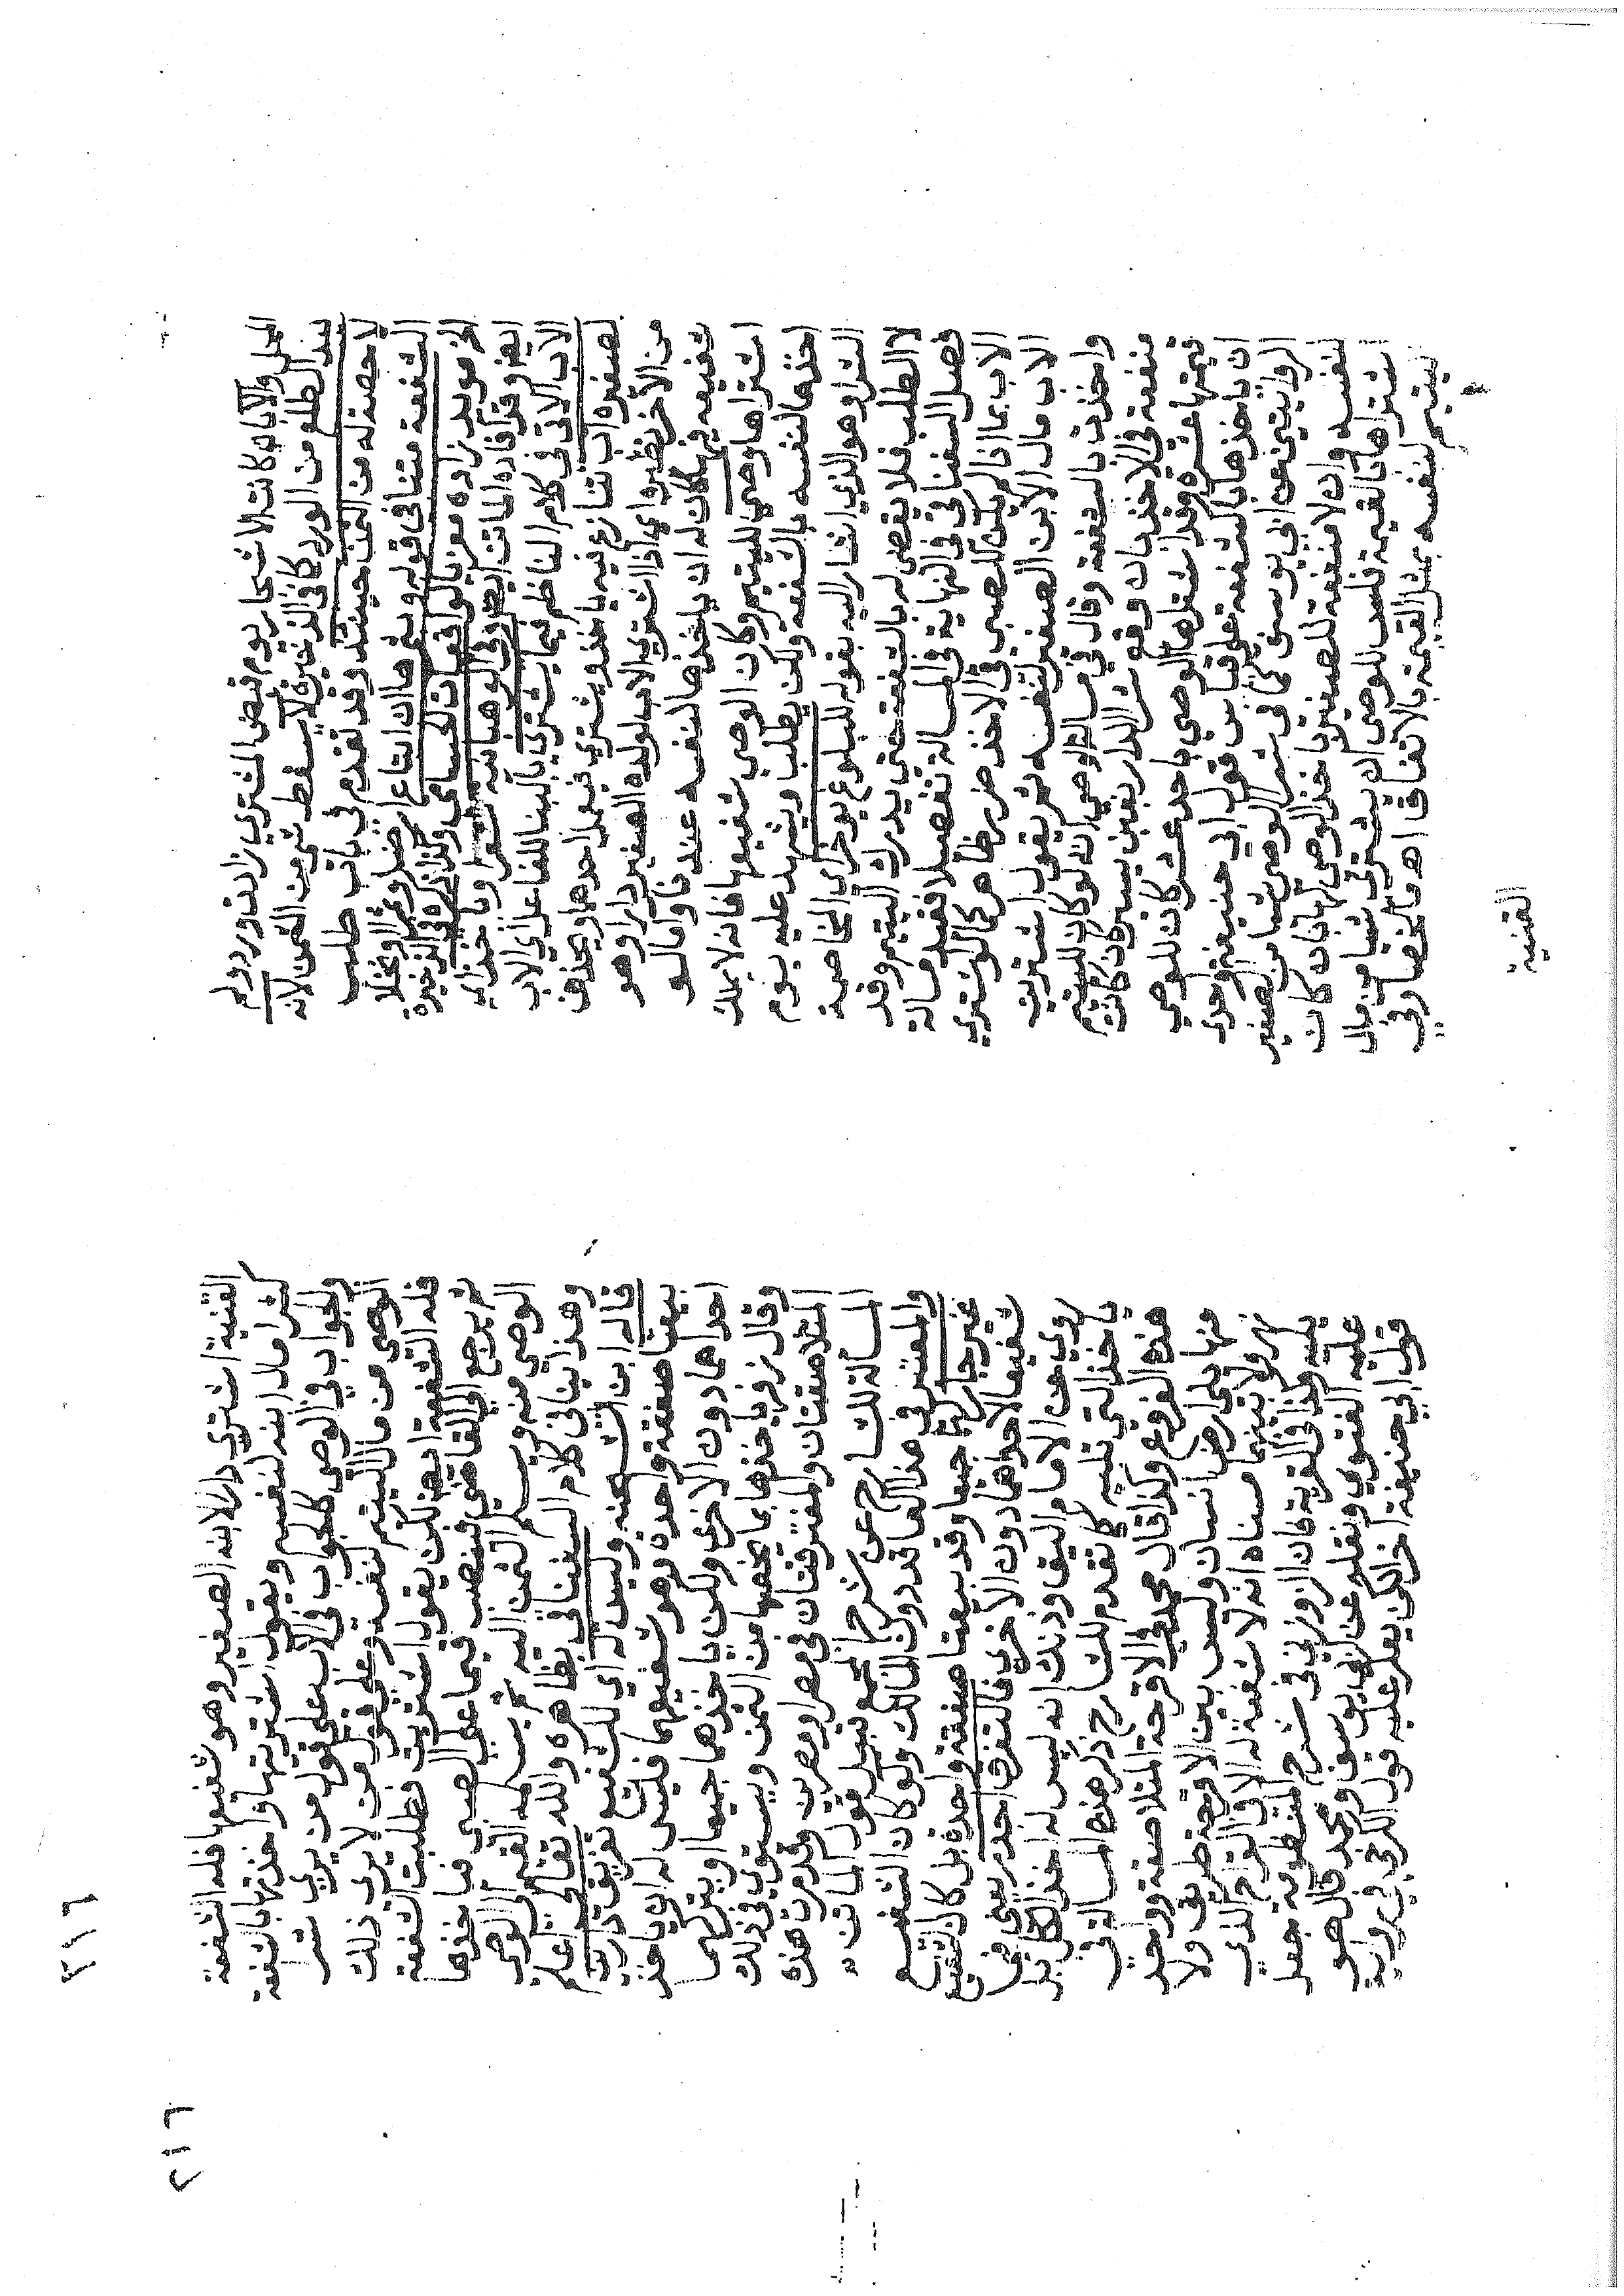 والا بان كانت الاشجار يوم قبض المشتري ورد ولم
يبد الطلع من الورد كما في الذخيرة لا يسقط شي من الثمن لانه
لا حصة له من الثمن حينئذ وقد تقدم في باب طلب
الشفعة متنا في قوله ان ابتاع ارضا ونخلا
الاب الاتي في كلام الناظم فيما يشتري بالبنا للفاعل اي الاب
لصغيره اب تنازع فيه ياخذ ويشتري فيعمل احدهما ويحذف
من الآخر نظيره اي اذا اشتري الاب لولده الصغير دارا وهو
شفيعه فيها كان له ان ياخذها لنفسه عندنا واما لو
اشتراها وصي لليتيم وكان الوصي شفيعها فانه لا يملك
اخذها لنفسه بالشفعة ولكن يطلب ويشهد عليه يوم
الشرا وهو الذي اشار اليه بقوله للبلوغ يوخر اي المخاصمة
لا الطلب فلا يقضي له بالشفعة حتي يدرك اليتيم وقد
فصل السغناقي في النهاية في المسالة تفصيلا فقيد مسالة
الاب بما اذا لم يكن للصبي في الاخذ ضرر ظاهر كما لو اشتري
الاب مال الابن الصغير لنفسه ثم يقول اشتريت
واخذت بالشفعة وقال في مسالة الوصي انه لو كان لليتيم
منفعة في الاخذ بان وقع شرا الدار بغبن يسير كان كانت
قيمتها عشرة وقد اشتراها الوصي باحد عشر كان للوصي
ان ياخذها بالشفعة على قياس قول ابي حنيفة واحدي
الروايتين عن ابي يوسف كما في شرا الوصي شيا من الصغير
لنفسه وان لا منفعة للصغير باخذ الوصي لها بان كان
اشتراها بالقيمة فليس للوصي ان يشتري شيا من مال
اليتيم لنفسه بمثل القيمة بالاتفاق اه ملخصا وفي
القنية
القنية اشتري دارا لابنه الصغير وهو شفيعها فله الشفعة
كشرا مال ابنه لنفسه ويقول اشتريتها واخذتها بالشفعة
والجواب في الوصي كالجواب في الاب على قول من يري شرا
الوصي من مال اليتيم لنفسه وعلي قول من لا يري ذلك
فله الشفعة ايضا لكن يقول اشتريت وطلبت الشفعة
ثم يرجع الي القاضي فينصب قيما على الصبي فياخذها
الوصي منه ويسلم الثمن اليه ثم يسلمه القيم الي الوصي
وهذا ينافي كلام السغناقي بظاهره والله تعالي اعلم
قاله ابن الشحنة وليس له اي للشفيع تفريق دارين
بيعتا صفقة واحدة وهو شفيعهما فليس له ان ياخذ
احداهما دون الاخري ولكن ياخذهما جميعا او يتركهما
وقال زفر ياخذها بما يخصها من الثمن ويستوي في ذلك
المتلاصقتان والمفترقتان في مصر او مصرين وقدمرت هذه
المسالة للشارح عن شرح المجمع قبيل قول الماتن
والمعتبر في هذا العاقد دون المالك ولو كان الشفيع
غير جار لهما جميعا وقد بيعتا صفقة واحدة بل كان الشفيع
شفيعا لاحداهما دون الاخري فالتفرق اجدر يعني فيما
روي عن الامام اليق وذلك انه ليس له اخذ الكل بل
ياخذ التي تليه كما تقدم للشارح ذكر هذه المسالة في
هذه الفروع وكذا قال محمد في الاقرحة المتلاصقة وواحد
منها يلي ارض انسان وليس بين الاقرحة طريق ولا
نهر ولا بينهما مسناة انه لا شفعة له الا في القراح الذي
يليه وكذا في القرية فان الزوزني في شرح المنظومة جعل
عليه الفتوي ونقله عن ابي يوسف ومحمد قال هو
قول ابي حنيفة اخرا لكن يعكر عليه قول الكرخي في رواية
٢١٦
٢١٦